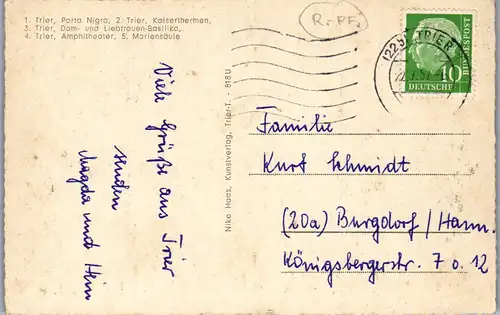 1. Trier, Porta Nigra, 2. Trier, Kaiserthermen,
3. Trier, Dom- und Liebfrauen-Basilika,
4. Trier, Amphitheater, 5. Mariensäule
Viele Grüße aus Trier
senden
Magda und Hein
Niko Haas, Kunstverlag, Trier-T. - 818 U
R-PF
(22b) TRIER
10
DEUTSCHE
BUNDESPOST
Familie
Kurt Schmidt
(20a) Burgdorf / Hann.
Königsbergerstr. 7 o. 12